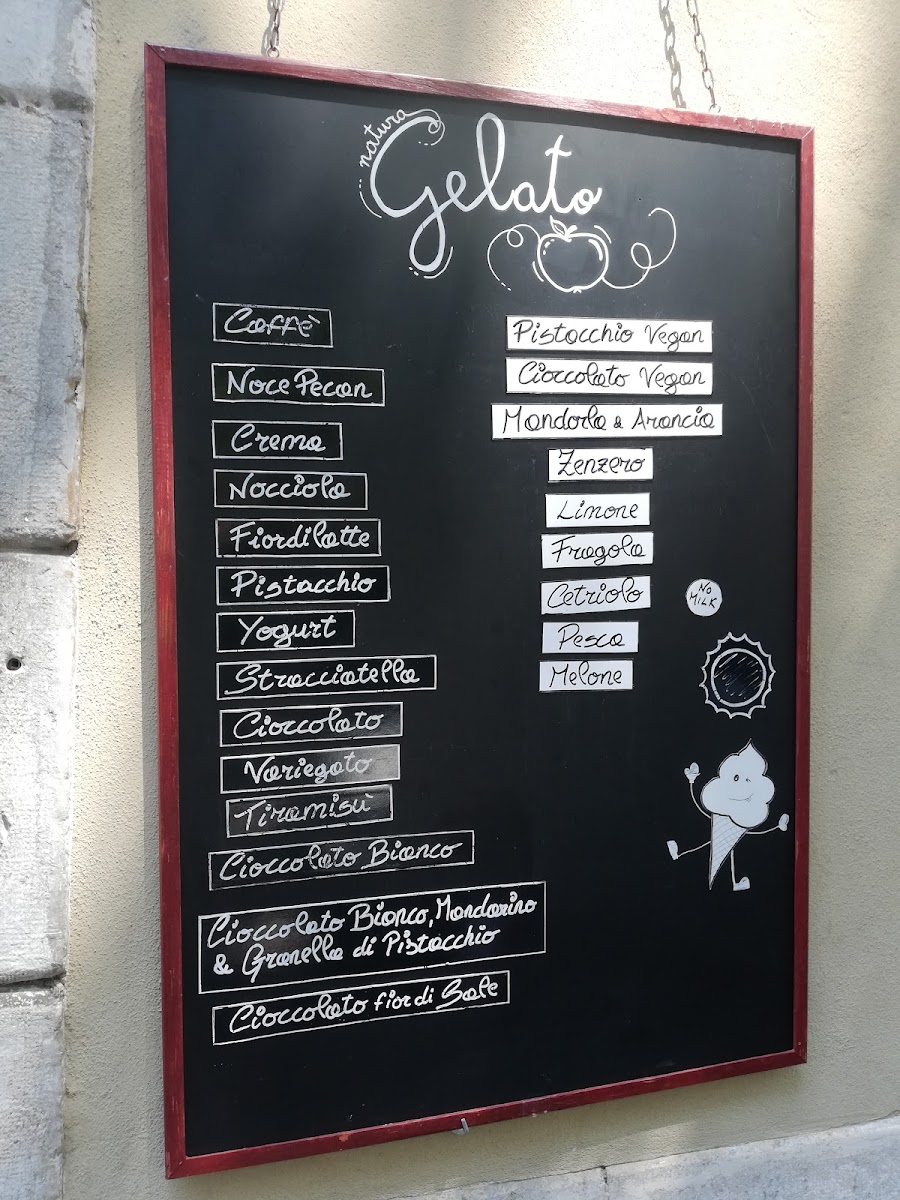 natura
Gelato
Caffè
Noce Pecan
Crema
Nocciola
Fiordilatte
Pistacchio
Yogurt
Stracciatella
Cioccolato
Variegato
Tiramisù
Cioccolato Bianco
Cioccolato Bianco, Mandarino
& Granella di Pistacchio
Cioccolato fior di Sale
Pistacchio Vegan
Cioccolato Vegan
Mandorla & Arancia
Zenzero
Limone
Fragola
Cetriolo
Pesca
Melone
NO
MILK